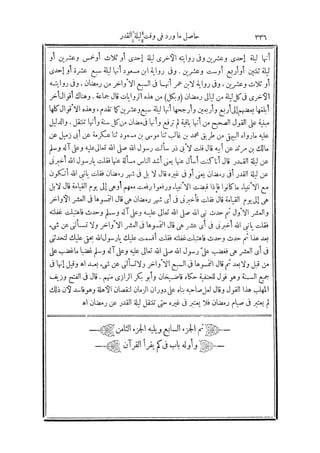 ٣٣٦ حاصل ما ورد في وقت ليلة القدر
أنها ليلة إحدى وعشرين وفى روايته الاخرى ليلة إحدى أو ثلاث أو خمس وعشرين أو
ليلة ثنتين أو أربع أو ست وعشرين. وفى رواية ابن مسعود أنها ليلة سبع عشرة أو إحدى
أو ثلاث وعشرين. وفى رواية لابن عمر أنها فى السبع الاواخر من رمضان. وفى روايته
الأخرى فى كل ليلة من ليالى رمضان (وبكل) من هذه الروايات قال جماعة. وهناك أقوال أخر
أبلغها بعضهم إلى أربع وأربعين وأرجحها أنها ليلة سبع وعشرين كما تقدم. وهذه الاقوال كلها
مبنية على القول الصحيح من أنها باقية لم ترفع وأنها فى رمضان من كل سنة وأنها تنتقل. والدليل
عليه مارواه البيهقى من طريق محمد بن غالب ثنا موسى بن مسعود ثنا عكرمة عن أبى زميل عن
مالك بن مرثد عن أبيه قال قلت لأبى ذر سألت رسول الله صلى الله تعالى عليه وعلى آله وسلم
عن ليلة القدر قال أنا كنت أسأل عنها يعنى أشد الناس مسألة عنها فقلت يا رسول الله أخبرنى
عن ليلة القدر أفى رمضان يعنى أو فى غيره قال لا بل فى شهر رمضان فقلت يا نبى الله أتكون
مع الانبياء ما كانوا فإذا قبضت الانبياء ورفعوا رفعت معهم أوهى إلى يوم القيامة قال لا بل
هى إلى يوم القيامة قال قلت فأخبرنى فى أى شهر رمضان هى قال التمسوها فى العشر الاواخر
والعشر الاول ثم حدث نبى الله صلى الله تعالى عليه وعلى آله وسلم وحدث فاهتبلت غفلته
فقلت يا نبى الله أخبرنى فى أى عشر هى قال التمسوها فى العشر الاواخر ولا تسألنى عن شىء
بعد هذا ثم حدث وحدث فاهتبلت غفلته فقلت أقسمت عليك يا رسول الله بحقى عليك لتحدثنى
فى أى العشر هى فغضب على رسول الله صلى الله تعالى عليه وعلى آله وسلم غضبا ما غضب على
من قبل ولا بعد ثم قال التمسوها فى السبع الاواخر ولا تسألنى عن شىء بعد اه وقيل إنها فى
جميع السنة وهو قول للحنفية حكاه قاضيخان وأبو بكر الرازى منهم. قال فى الفتح وزيف
المهلب هذا القول وقال لعل صاحبه بناه على دوران الزمان لنقصان الاهلة وهو فاسد لأن ذلك
لم يعتبر فى صيام رمضان فلا يعتبر فى غيره حتى تنتقل ليلة القدر عن رمضان اه
تم الجزء السابع ويليه الجزء الثامن
وأوله باب فى كم يقرأ القرآن